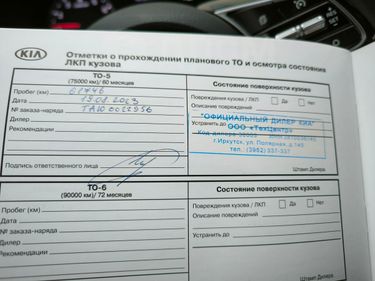 KIA
Отметки о прохождении планового ТО и осмотра состояния
ЛКП кузова
ТО-5
(75000 км)/ 60 месяцев
Состояние поверхности кузова
Пробег (км)
Дата
№ заказа-наряда
Дилер
Рекомендации
Повреждения кузова / ЛКП Да Нет
Описание повреждений
Устранить до
"ОФИЦИАЛЬНЫЙ ДИЛЕР КИА"
ООО «ТехЦентр»
г.Иркутск, ул. Полярная, д.
тел. (3952) 337-337
Подпись ответственного лица
Штамп Дилера
ТО-6
(90000 км)/ 72 месяцев
Состояние поверхности кузова
Пробег (км)
Дата
№ заказа-наряда
Дилер
Рекомендации
Повреждения кузова / ЛКП Да Нет
Описание повреждений
Устранить до
Штамп Дилера